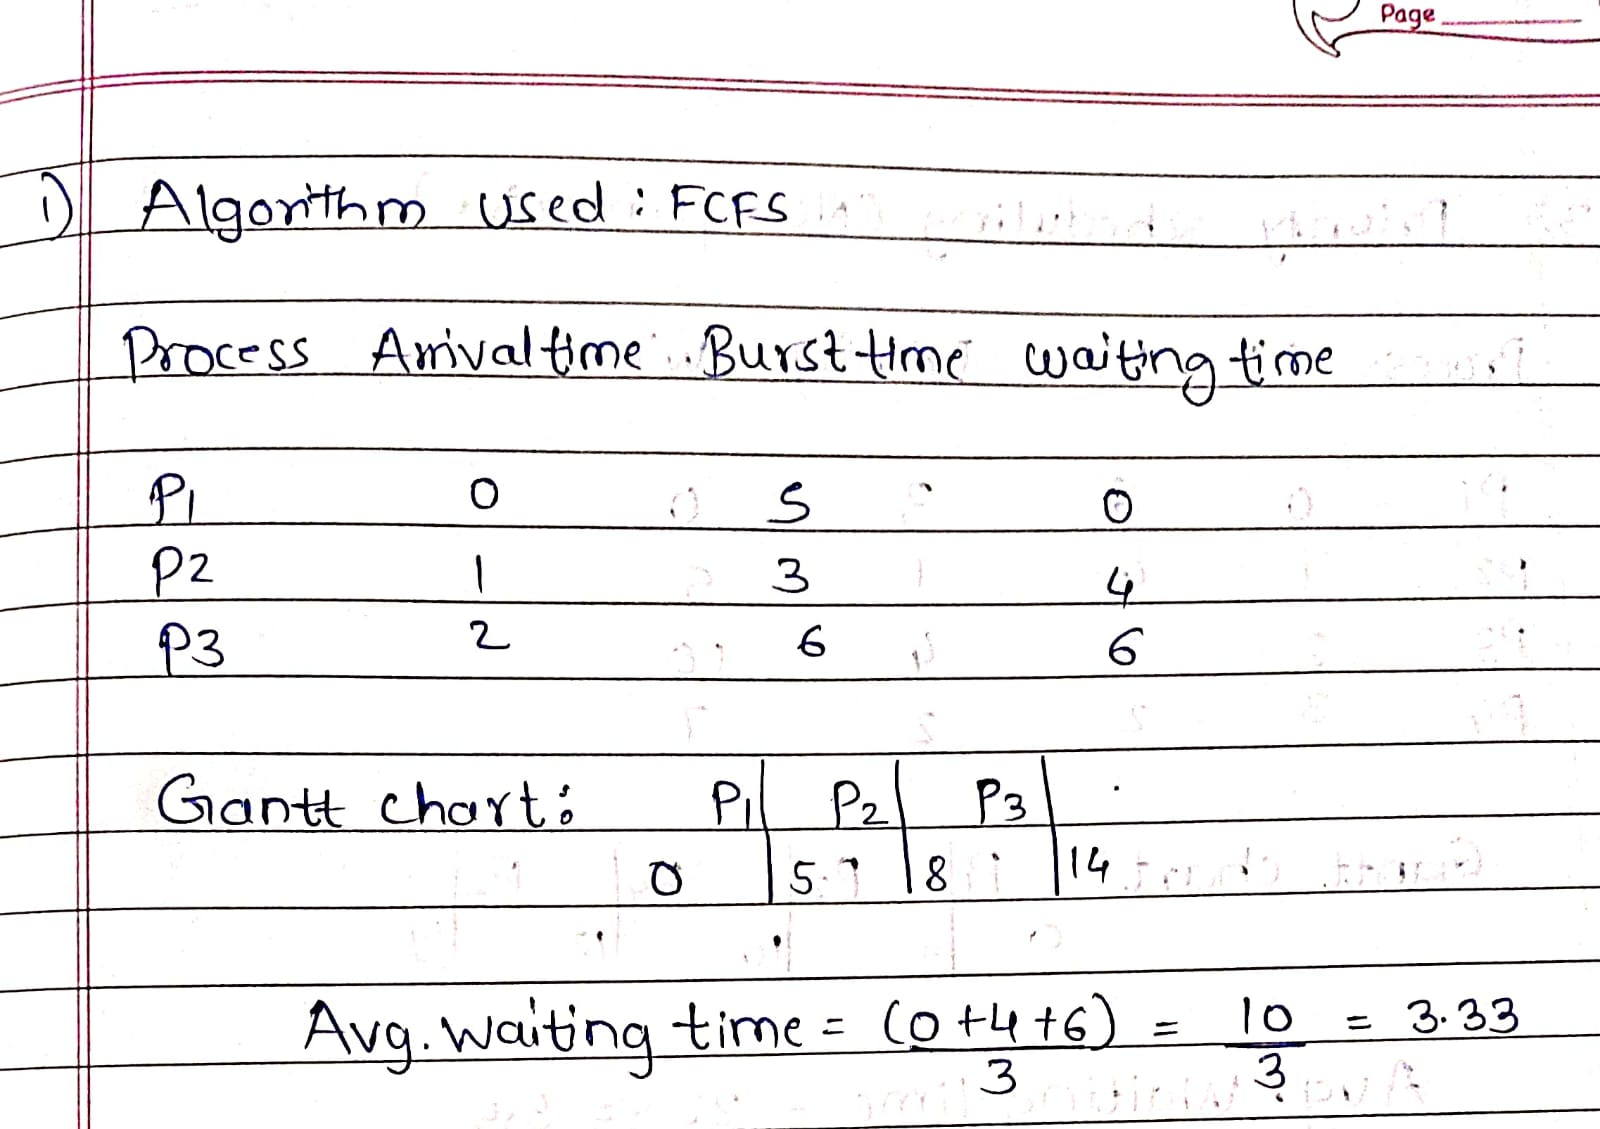 Page
1) Algorithm used : FCFS
Process Arrival time Burst time waiting time
P1 0 5 0
P2 1 3 4
P3 2 6 6
Gantt chart : P1 | P2 | P3 |
0 | 5 | 8 | 14
Avg. waiting time = (0+4+6) = 10 = 3.33
3 3